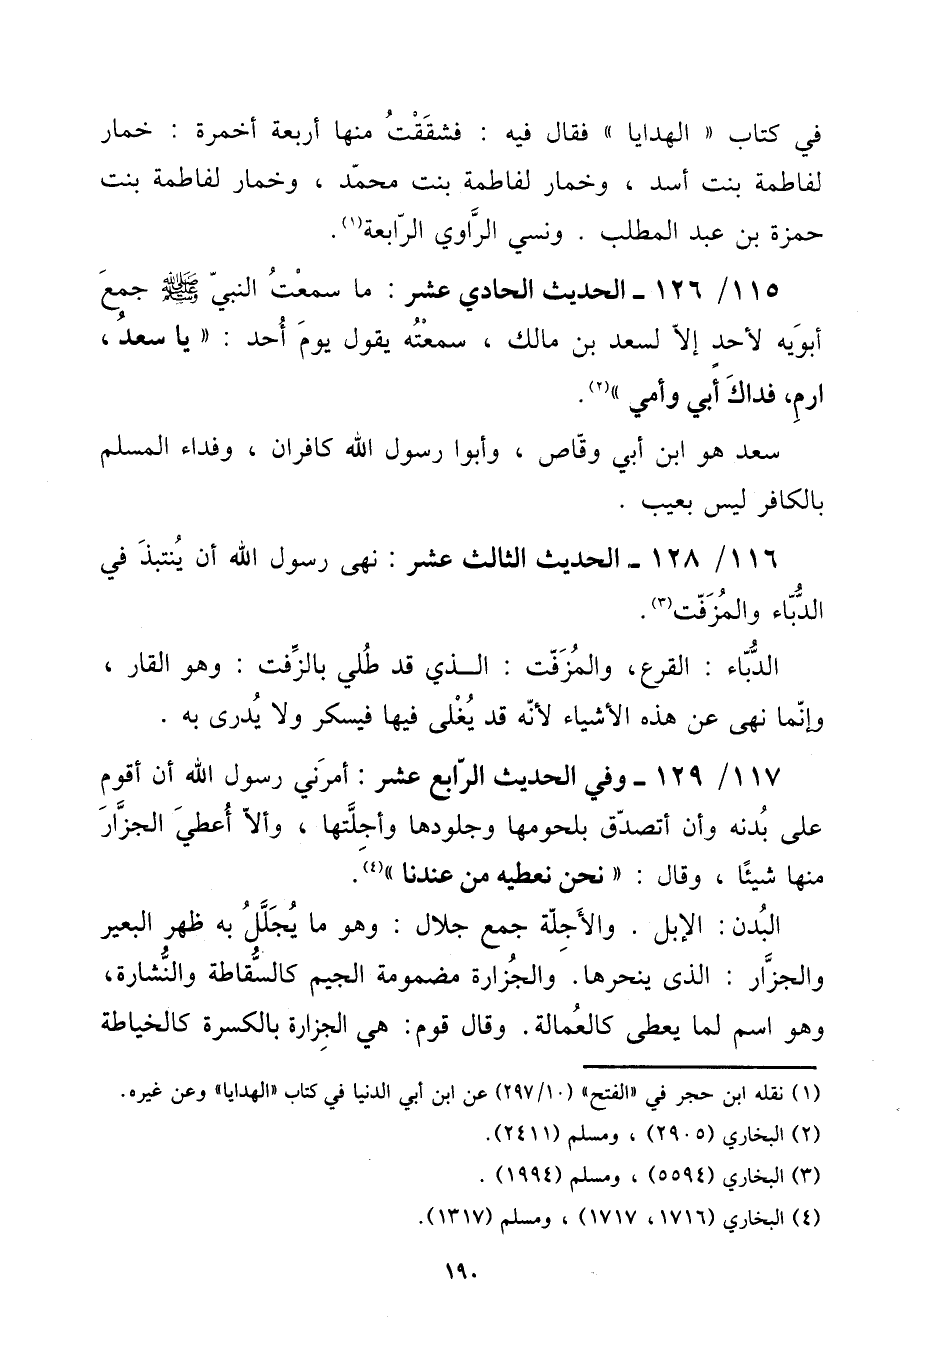 في كتاب « الهدايا » فقال فيه : فشقَقْتُ منها أربعة أخمرة : خمار
لفاطمة بنت أسد ، وخمار لفاطمة بنت محمّد ، وخمار لفاطمة بنت
حمزة بن عبد المطلب . ونسي الرَّاوي الرّابعة(١).
١١٥/ ١٢٦ ـ الحديث الحادي عشر : ما سمعْتُ النبيّ ﷺ جمعَ
أبوَيه لأحدٍ إلاّ لسعد بن مالك ، سمعْتُه يقول يومَ أُحد : « يا سعدُ ،
ارمِ، فداكَ أبي وأمي »(٢).
سعد هو ابن أبي وقّاص ، وأبوا رسول الله كافران ، وفداء المسلم
بالكافر ليس بعيب .
١١٦/ ١٢٨ ـ الحديث الثالث عشر : نهى رسول الله أن يُنتبذَ في
الدُّبّاء والمُزَفّت(٣).
الدُّبّاء : القرع، والمُزَفّت : الـذي قد طُلي بالزِّفت : وهو القار ،
وإنّما نهى عن هذه الأشياء لأنّه قد يُغْلى فيها فيسكر ولا يُدرى به .
١١٧/ ١٢٩ ـ وفي الحديث الرّابع عشر : أمرَني رسول الله أن أقوم
على بُدنه وأن أتصدّق بلحومها وجلودها وأجِلَّتها ، وألاّ أُعطيَ الجزَّارَ
منها شيئًا ، وقال : « نحن نعطيه من عندنا »(٤).
البُدن : الإبل . والأَجِلّة جمع جلال : وهو ما يُجَلَّلُ به ظهر البعير
والجزَّار : الذى ينحرها. والجُزارة مضمومة الجيم كالسُّقاطة والنُّشارة،
وهو اسم لما يعطى كالعُمالة. وقال قوم: هي الجِزارة بالكسرة كالخياطة
(١) نقله ابن حجر في «الفتح» (١٠/٢٩٧) عن ابن أبي الدنيا في كتاب «الهدايا» وعن غيره.
(٢) البخاري (٢٩٠٥) ، ومسلم (٢٤١١).
(٣) البخاري (٥٥٩٤) ، ومسلم (١٩٩٤) .
(٤) البخاري (١٧١٦، ١٧١٧) ، ومسلم (١٣١٧).
١٩٠